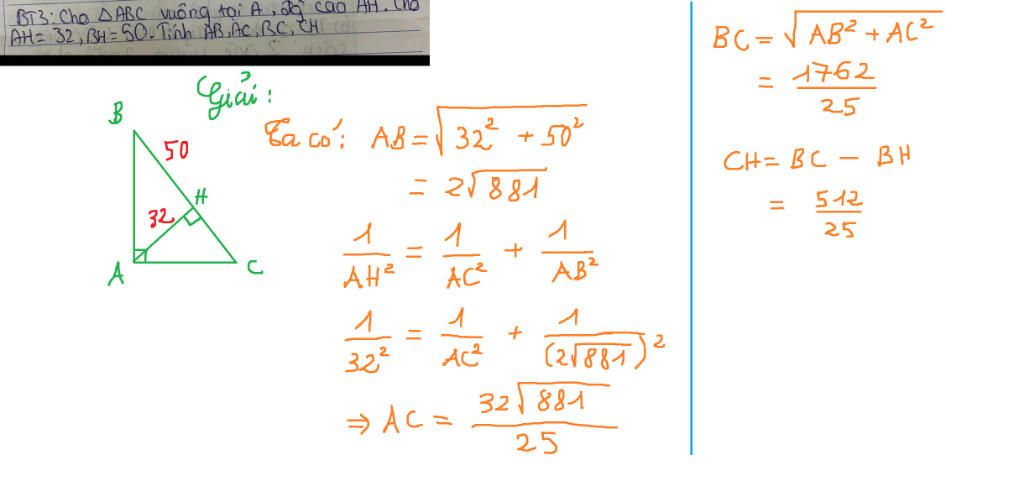 BT3: Cho △ABC vuông tại A, đg cao AH. Cho
AH= 32, BH= 50. Tính AB, AC, BC, CH
Giải:
B
50
H
32
A
C
Ta có: AB = √(32² + 50²)
= 2√881
1/AH² = 1/AC² + 1/AB²
1/32² = 1/AC² + 1/(2√881)²
⇒ AC = 32√881/25
BC = √(AB² + AC²)
= 1762/25
CH = BC − BH
= 512/25